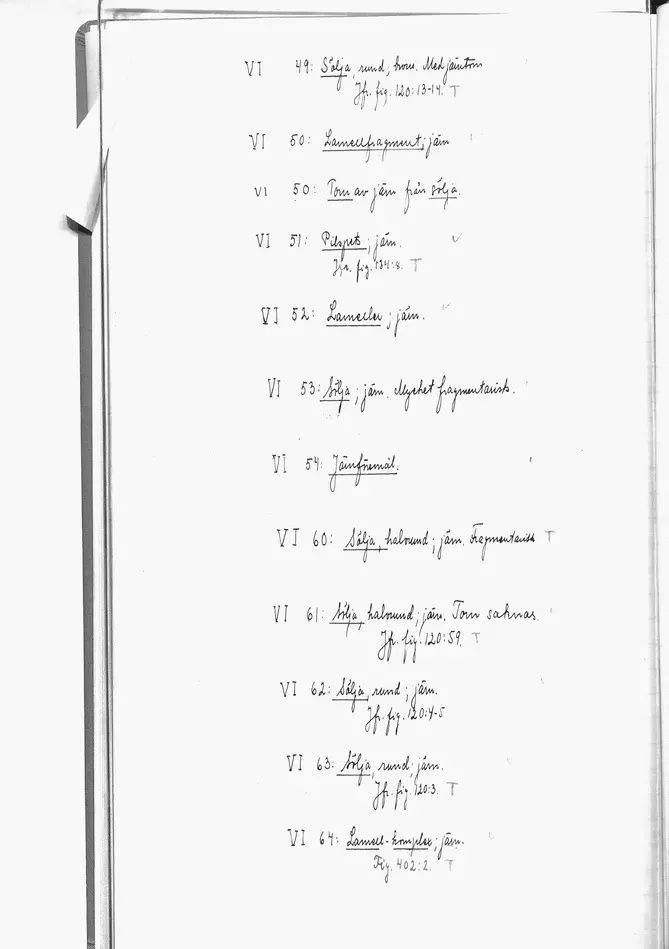 VI 49: Sölja, rund; brons. Med järntorn
Jfr. fig. 120:13-14. T
VI 50: Lamellfragment; järn
VI 50: Torn av järn från sölja.
VI 51: Pilspets; järn.
Jfr. fig. 134:8. T
VI 52: Lameller; järn.
VI 53: Sölja; järn. Mycket fragmentarisk.
VI 54: Järnföremål.
VI 60: Sölja, halvrund; järn. Fragmentarisk T
VI 61: Sölja, halvrund; järn. Torn saknas.
Jfr. fig. 120:59. T
VI 62: Sölja, rund; järn.
Jfr. fig. 120:4-5
VI 63: Sölja, rund; järn.
Jfr. fig. 120:3. T
VI 64: Lamell-komplex; järn.
Fig. 402:2. T